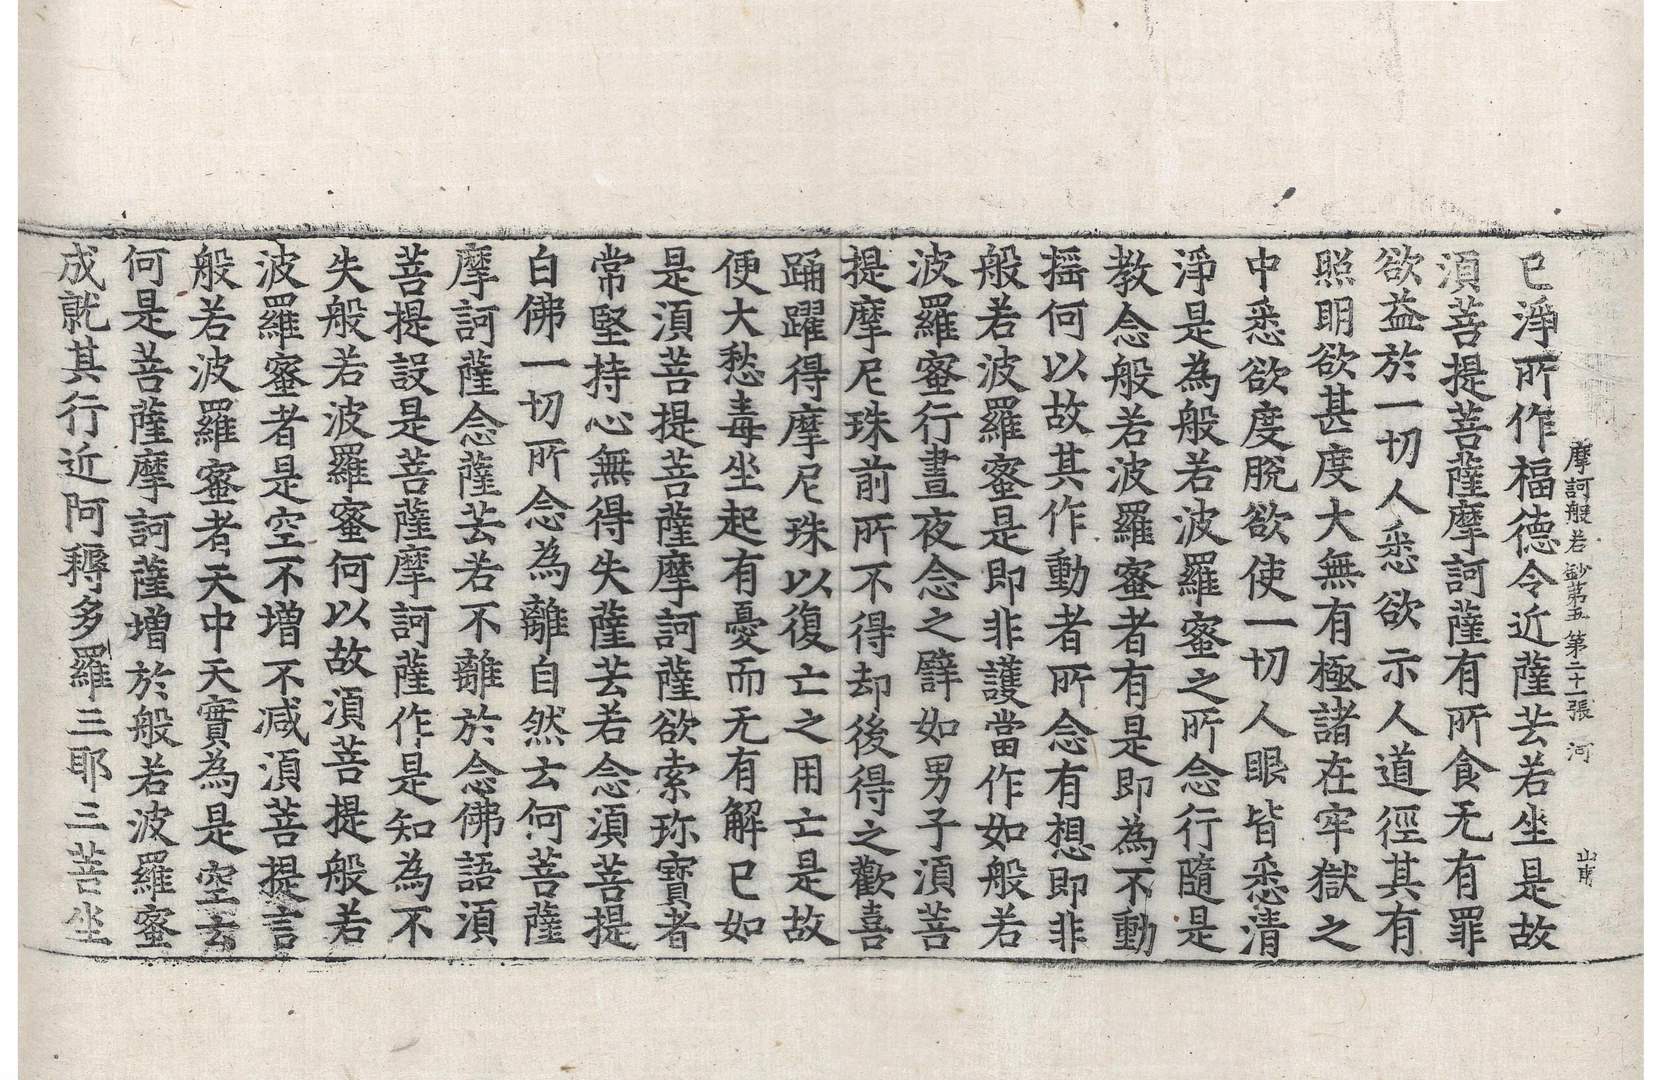 摩訶般若鈔第五 第二十一張 河
已淨所作福德令近薩芸若坐是故
湏菩提菩薩摩訶薩有所食无有罪
欲益於一切人悉欲示人道徑其有
照明欲甚度大無有極諸在牢獄之
中悉欲度脫欲使一切人眼皆悉清
淨是為般若波羅蜜之所念行隨是
教念般若波羅蜜者有是即為不動
搖何以故其作動者所念有想即非
般若波羅蜜是即非護當作如般若
波羅蜜行晝夜念之譬如男子湏菩
提摩尼珠前所不得却後得之歡喜
踊躍得摩尼珠以復亡之用亡是故
便大愁毒坐起有憂而无有解已如
是湏菩提菩薩摩訶薩欲索珎寶者
常堅持心無得失薩芸若念湏菩提
白佛一切所念為離自然云何菩薩
摩訶薩念薩芸若不離於念佛語湏
菩提設是菩薩摩訶薩作是知為不
失般若波羅蜜何以故湏菩提般若
波羅蜜者是空不增不减湏菩提言
般若波羅蜜者天中天實為是空云
何是菩薩摩訶薩增於般若波羅蜜
成就其行近阿耨多羅三耶三菩坐